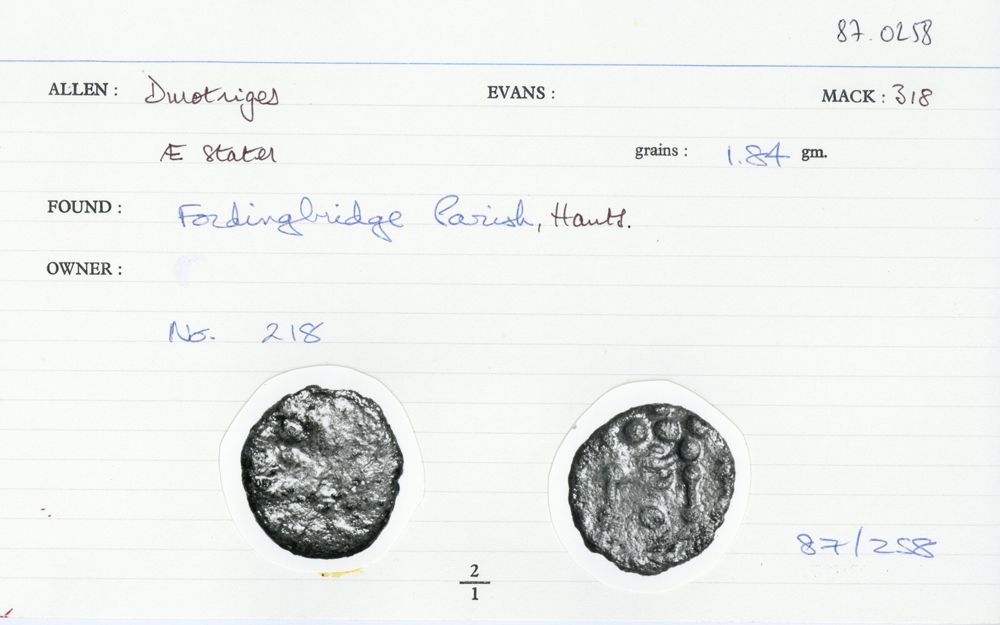 87.0258
ALLEN : Durotriges EVANS : MACK : 318
Æ Stater grains : 1.84 gm.
FOUND : Fordingbridge Parish, Hants.
OWNER :
No. 218
87/258
2
1